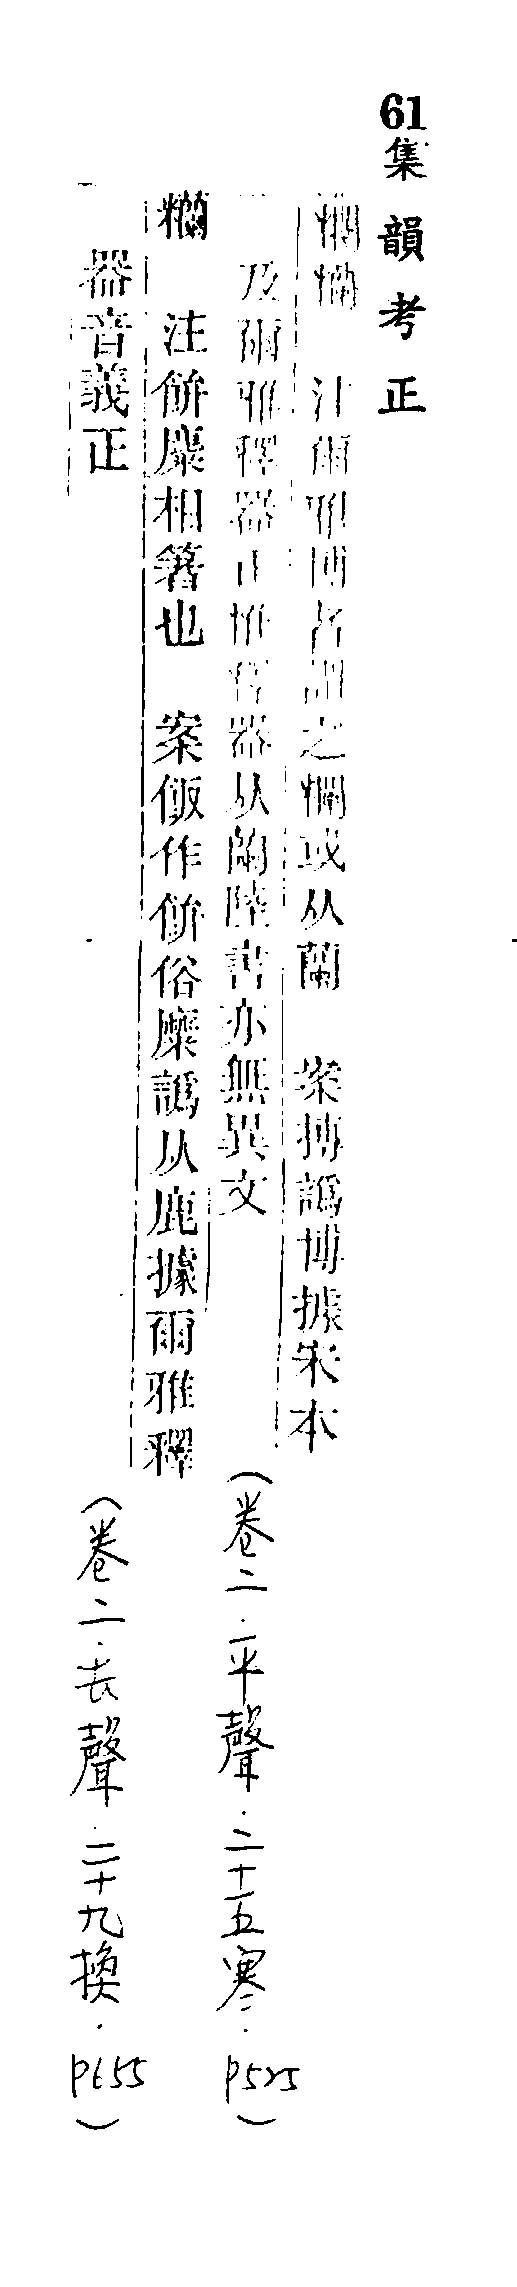 61集韻考正
注爾雅博者謂之㦨或从蘭　案摶譌博據宋本
及爾雅釋器正惟釋器从蘭陸書亦無異文
糷　注餅糜相箸也　案飯作餅俗糜譌从鹿據爾雅釋
器音義正
（卷二．平聲．二十五寒．P525）
（卷二．去聲．二十九換．P655）